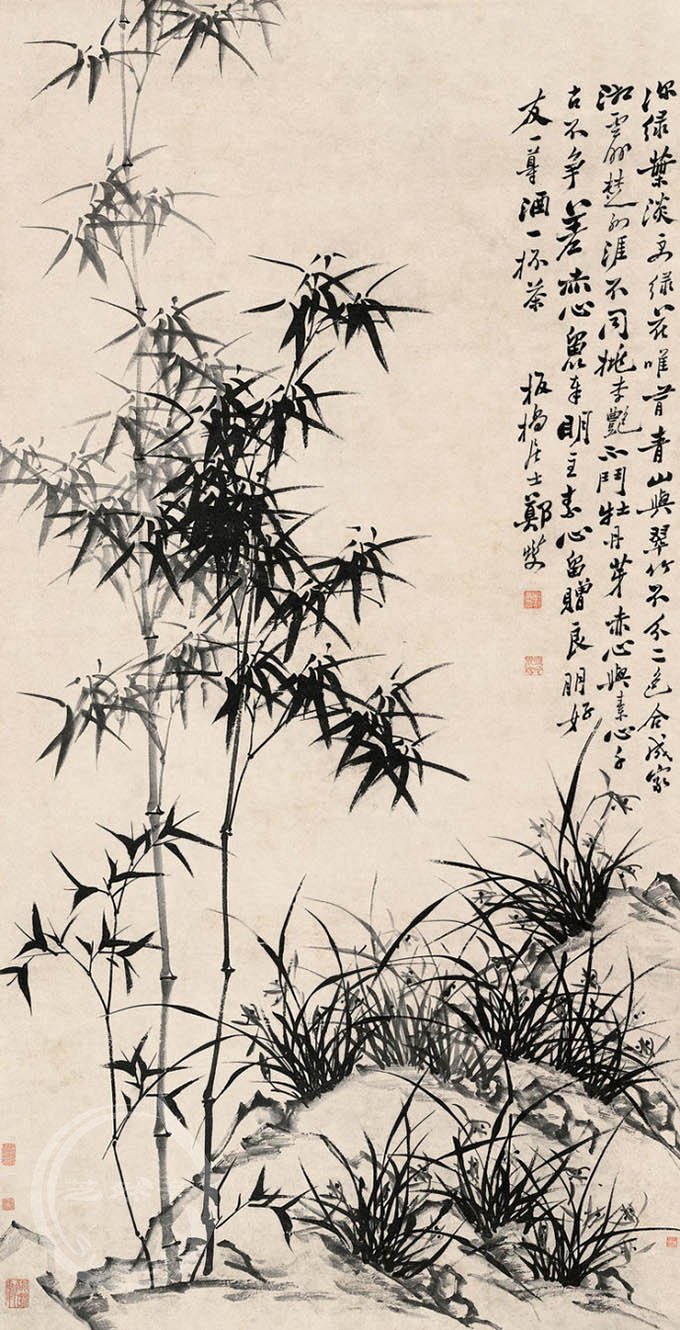 深緑葉淡緑花唯青山與翠竹不分二色合成家
湘雲外楚江涯不同桃李艷不鬥牡丹芽赤心與素心千
古不爭差赤心留奉明主素心留贈良朋好
友一尊酒一杯茶 板橋居士鄭燮